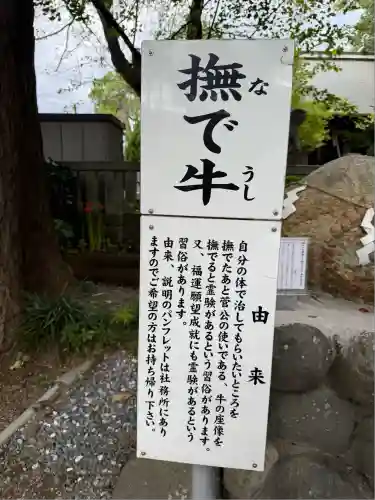 撫で牛
な
うし
由来
自分の体で治してもらいたいところを
撫でたあと菅公の使いである、牛の座像を
撫でると霊験があるという習俗があります。
又、福運や願望成就にも霊験があるという
習俗があります。
由来、説明のパンフレットは社務所にあり
ますのでご希望の方はお持ち帰り下さい。